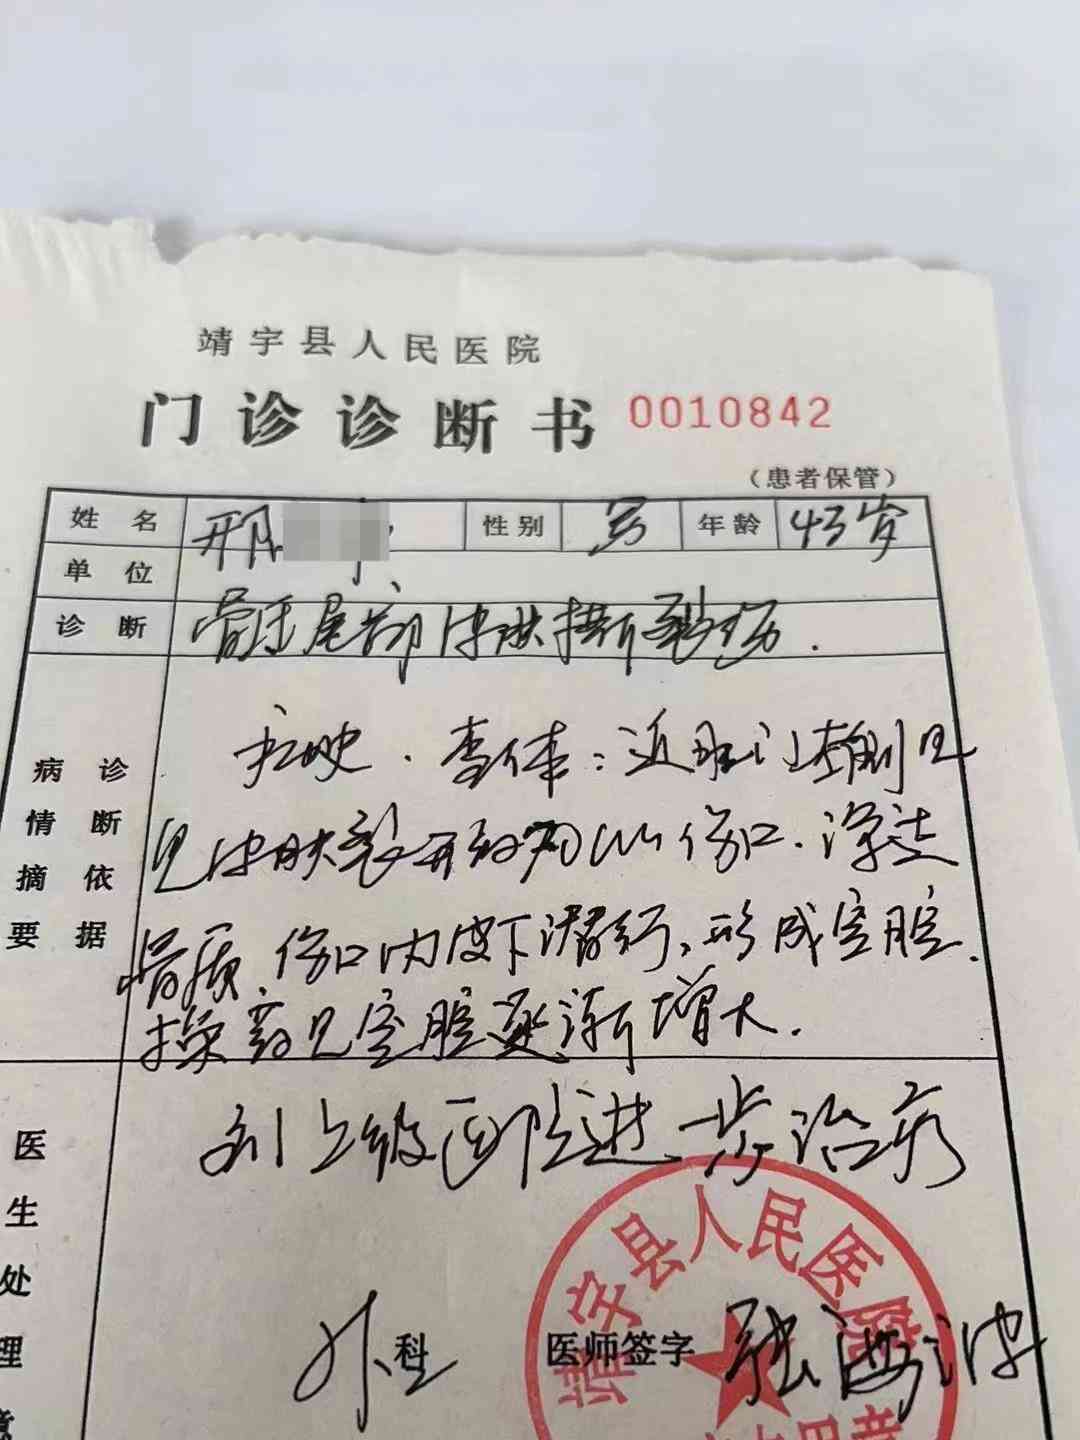 靖宇县人民医院
门诊诊断书 0010842
（患者保管）
姓名 邢 性别 男 年龄 43岁
单位
诊断 骶尾部皮肤挫裂伤.
病情摘要 诊断依据
查体：近肛门左侧见
见皮肤裂开约 伤口.深达
骨质.伤口内皮下潜行,形成空腔.
换药见空腔逐渐增大.
医生处理意
到上级医院进一步治疗
外科 医师签字 张海波
靖宇县人民医院